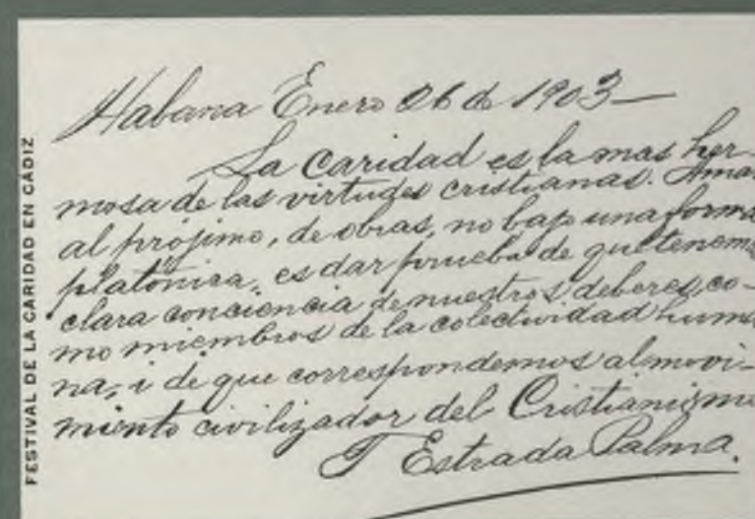 FESTIVAL DE LA CARIDAD EN CADIZ
Habana Enero 26 de 1903—
La Caridad es la mas her-
mosa de las virtudes cristianas. Ama
al prójimo, de obras, no bajo una form
platónica, es dar prueba de que tenem
clara conciencia de nuestros deberes, co-
mo miembros de la colectividad huma
na, i de que correspondemos al movi-
miento civilizador del Cristianismo
T Estrada Palma.